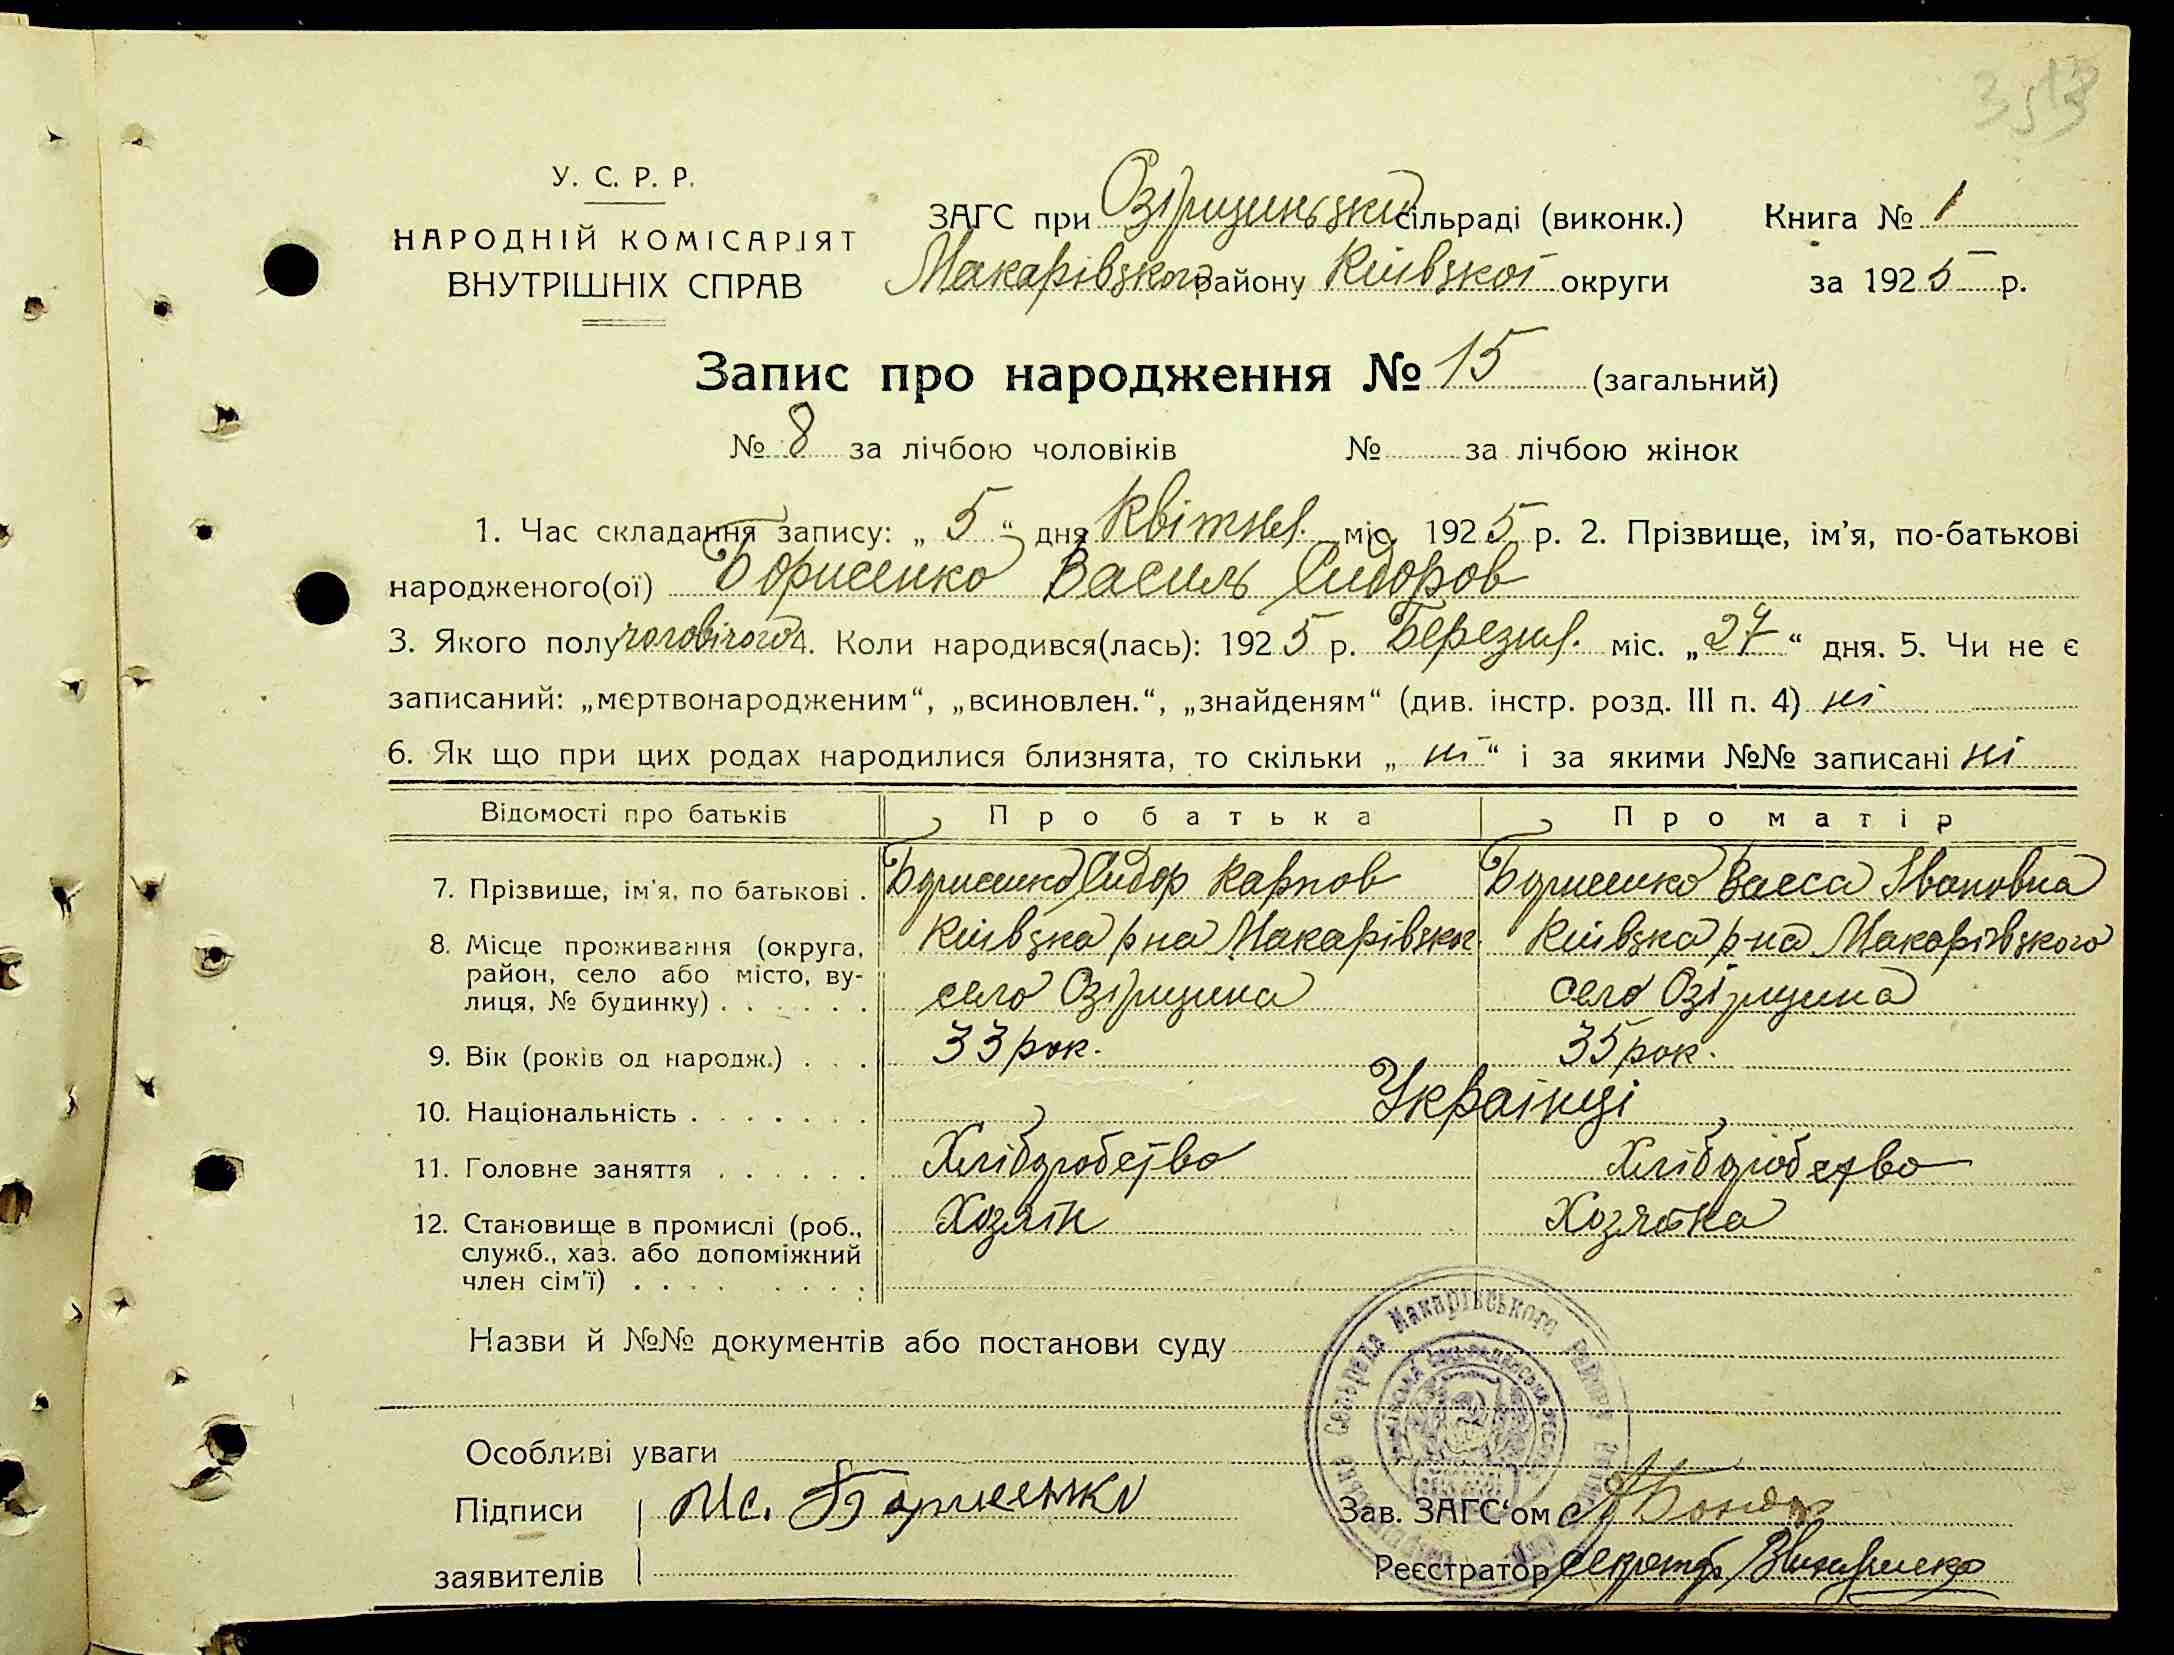 У. С. Р. Р.
НАРОДНІЙ КОМІСАРІЯТ
ВНУТРІШНІХ СПРАВ
ЗАГС при Озірщиньзкій сільраді (виконк.) Книга № 1
Макарівзкого району Київзкоі округи за 1925 р.
Запис про народження № 15 (загальний)
№ 8 за лічбою чоловіків № за лічбою жінок
1. Час складання запису: „5“ дня Квітня. міс. 1925 р. 2. Прізвище, ім'я, по-батькові
народженого(ої) Борисенко Василь Сидоров
3. Якого полу чоловічого 4. Коли народився(лась): 1925 р. Березня. міс. „27“ дня. 5. Чи не є
записаний: „мертвонародженим“, „всиновлен.“, „знайденям“ (див. інстр. розд. III п. 4) ні
6. Як що при цих родах народилися близнята, то скільки „ні“ і за якими №№ записані ні
Відомості про батьків Про батька Про матір
7. Прізвище, ім'я, по батькові . Борисенко Сидор Карпов Борисенко Васса Івановна
8. Місце проживання (округа, район, село або місто, вулиця, № будинку) . . . . . .
Київзка р-на Макарівзког Київзка р-на Макарівзкого
село Озірщина село Озірщина
9. Вік (років од народж.) . . . 33 рок. 35 рок.
10. Національність . . . . . . . Українці
11. Головне заняття . . . . . . Хліборобство Хліборобство
12. Становище в промислі (роб., Хозяїн Хозяйка
служб., хаз. або допоміжний
член сім'ї) . . . . . . . .
Назви й №№ документів або постанови суду
Особливі уваги
Підписи Борисенко Зав. ЗАГС'ом Бондар
заявителів Реєстратор секретр.
Сельрада Макарівського району